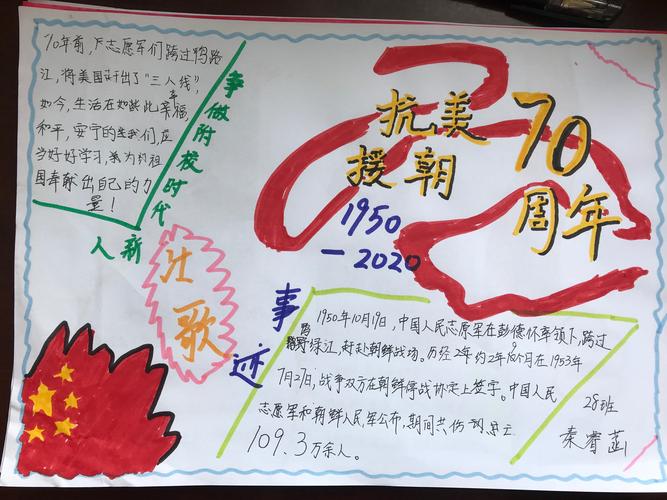 70年前,志愿军们跨过鸭路
江,将美国赶出了"三八线",
如今,生活在如此幸福,
和平,安宁的我们,应
当好好学习,为祖
国奉献出自己的力
量!
争做附校时代
新人
壮歌
抗美
援朝
70
周年
1950
—2020
事迹
1950年10月19日,中国人民志愿军在彭德怀率领下,跨过
绿江,赶赴朝鲜战场。历经2年约2年9个月在1953年
7月27日,战争双方在朝鲜停战协定上签字。中国人民
志愿军和朝鲜人民军公布,期间共伤
109.3万余人。
28班
秦